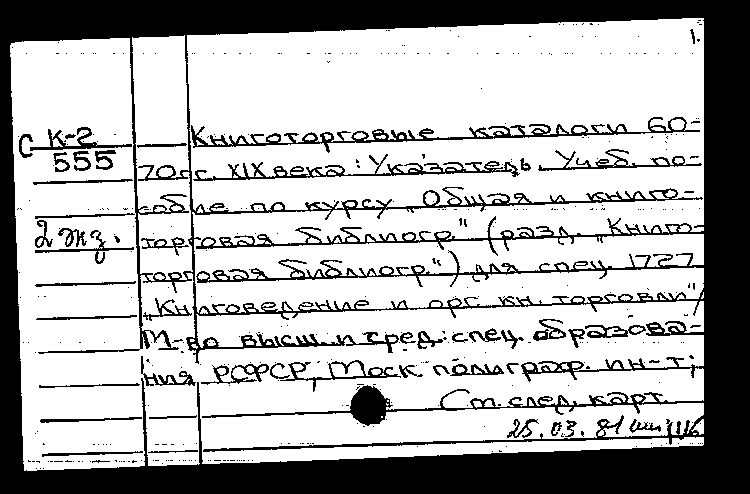 1.
С К-2
555
2 экз.
Книготорговые каталоги 60-
70 гг. XIX века: Указатель. Учеб. по-
собие по курсу „Общая и книго-
торговая библиогр." (разд. „Книго-
торговая библиогр.") для спец. 1727
„Книговедение и орг. кн. торговли"/
М-во высш. и сред. спец. образова-
ния РСФСР, Моск. полиграф. ин-т;
См. след. карт.
25.03.81